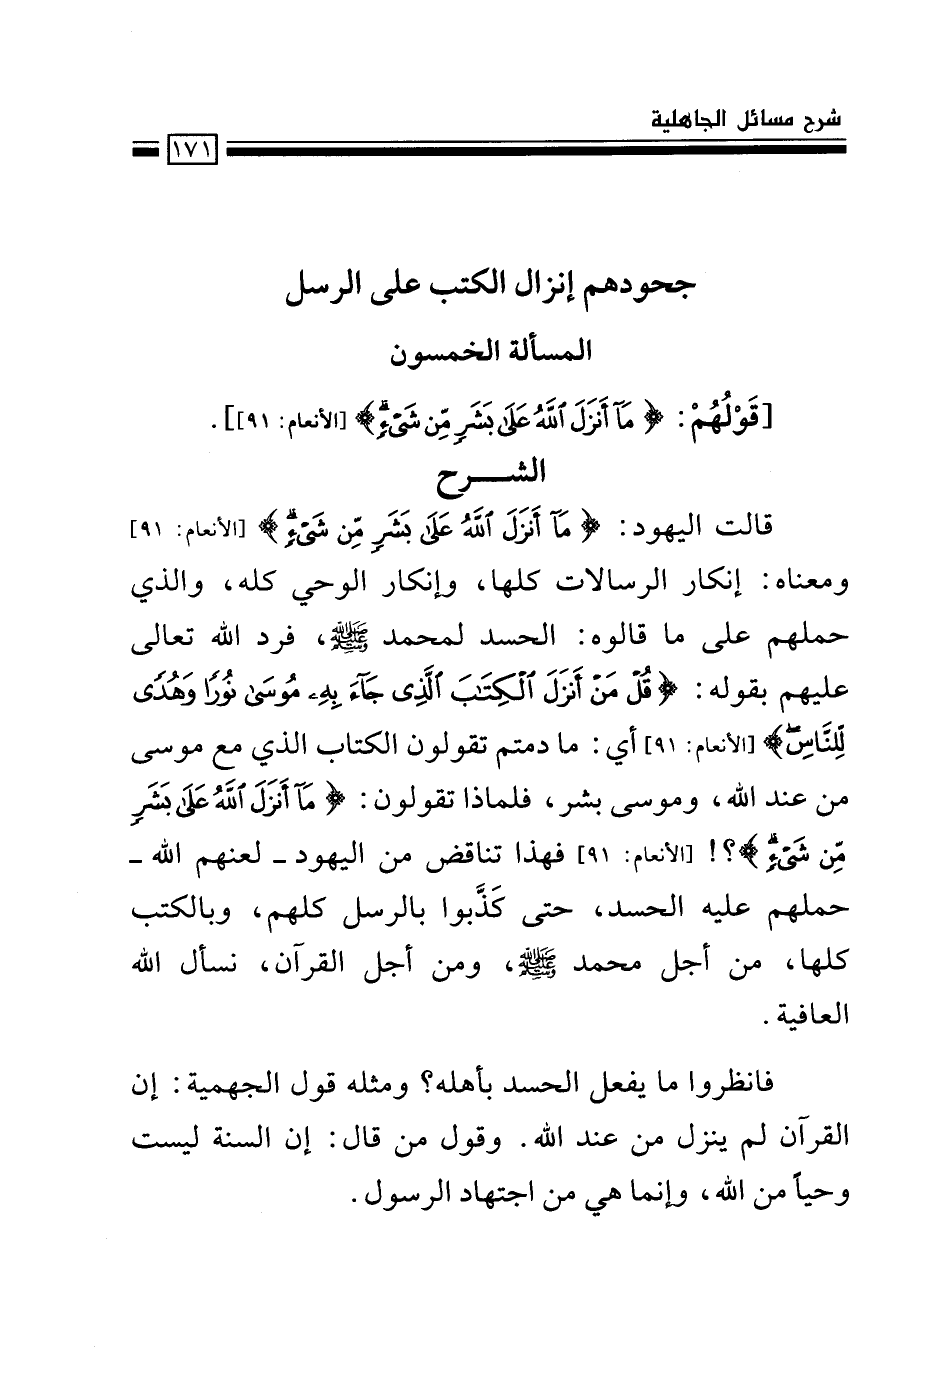 شرح مسائل الجاهلية
١٧١
جحودهم إنزال الكتب على الرسل
المسألة الخمسون
[قَوْلُهُمْ: ﴿ مَآ أَنزَلَ ٱللَّهُ عَلَىٰ بَشَرٍ مِّن شَىْءٍۗ ﴾ [الأنعام: ٩١]].
الشـــرح
قالت اليهود: ﴿ مَآ أَنزَلَ ٱللَّهُ عَلَىٰ بَشَرٍ مِّن شَىْءٍۗ ﴾ [الأنعام: ٩١]
ومعناه: إنكار الرسالات كلها، وإنكار الوحي كله، والذي
حملهم على ما قالوه: الحسد لمحمد ﷺ، فرد الله تعالى
عليهم بقوله: ﴿ قُلْ مَنْ أَنزَلَ ٱلْكِتَٰبَ ٱلَّذِى جَآءَ بِهِۦ مُوسَىٰ نُورًا وَهُدًى
لِّلنَّاسِۖ ﴾ [الأنعام: ٩١] أي: ما دمتم تقولون الكتاب الذي مع موسى
من عند الله، وموسى بشر، فلماذا تقولون: ﴿ مَآ أَنزَلَ ٱللَّهُ عَلَىٰ بَشَرٍ
مِّن شَىْءٍۗ ﴾؟! [الأنعام: ٩١] فهذا تناقض من اليهود ـ لعنهم الله ـ
حملهم عليه الحسد، حتى كَذَّبوا بالرسل كلهم، وبالكتب
كلها، من أجل محمد ﷺ، ومن أجل القرآن، نسأل الله
العافية.
فانظروا ما يفعل الحسد بأهله؟ ومثله قول الجهمية: إن
القرآن لم ينزل من عند الله. وقول من قال: إن السنة ليست
وحياً من الله، وإنما هي من اجتهاد الرسول.